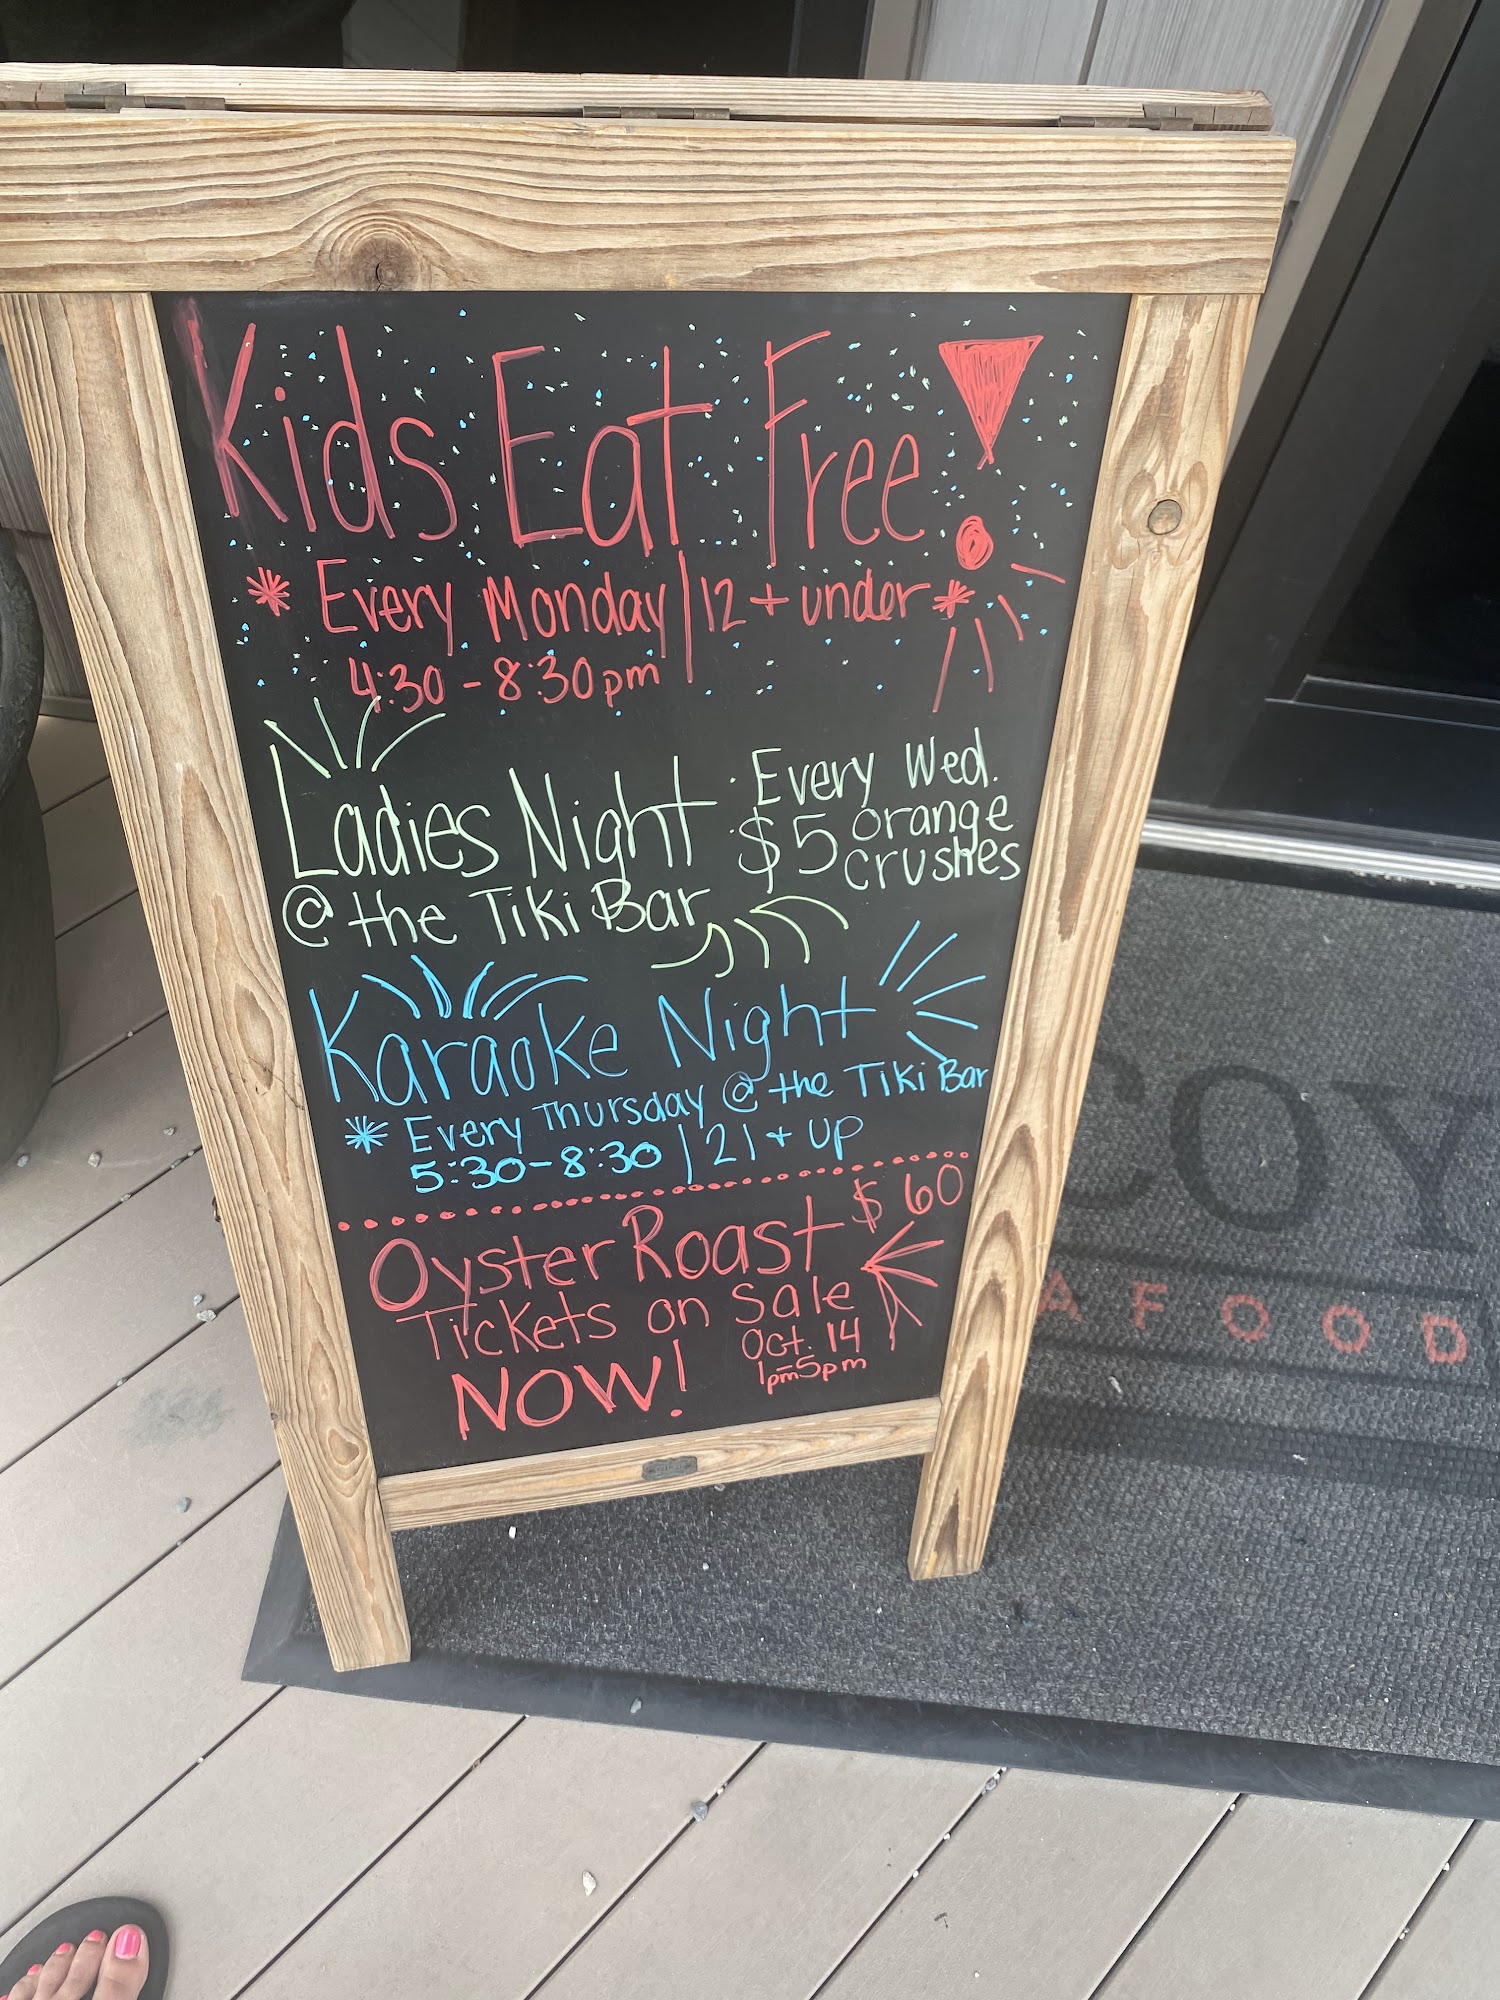 Kids Eat Free!
* Every Monday | 12 + under *
4:30 - 8:30pm
Ladies Night
@ the Tiki Bar
· Every Wed.
· $5 orange
crushes
Karaoke Night
* Every Thursday @ the Tiki Bar
5:30-8:30 | 21 + up
Oyster Roast $60
Tickets on Sale
NOW!
Oct. 14
1pm-5pm
OY
AFOOD